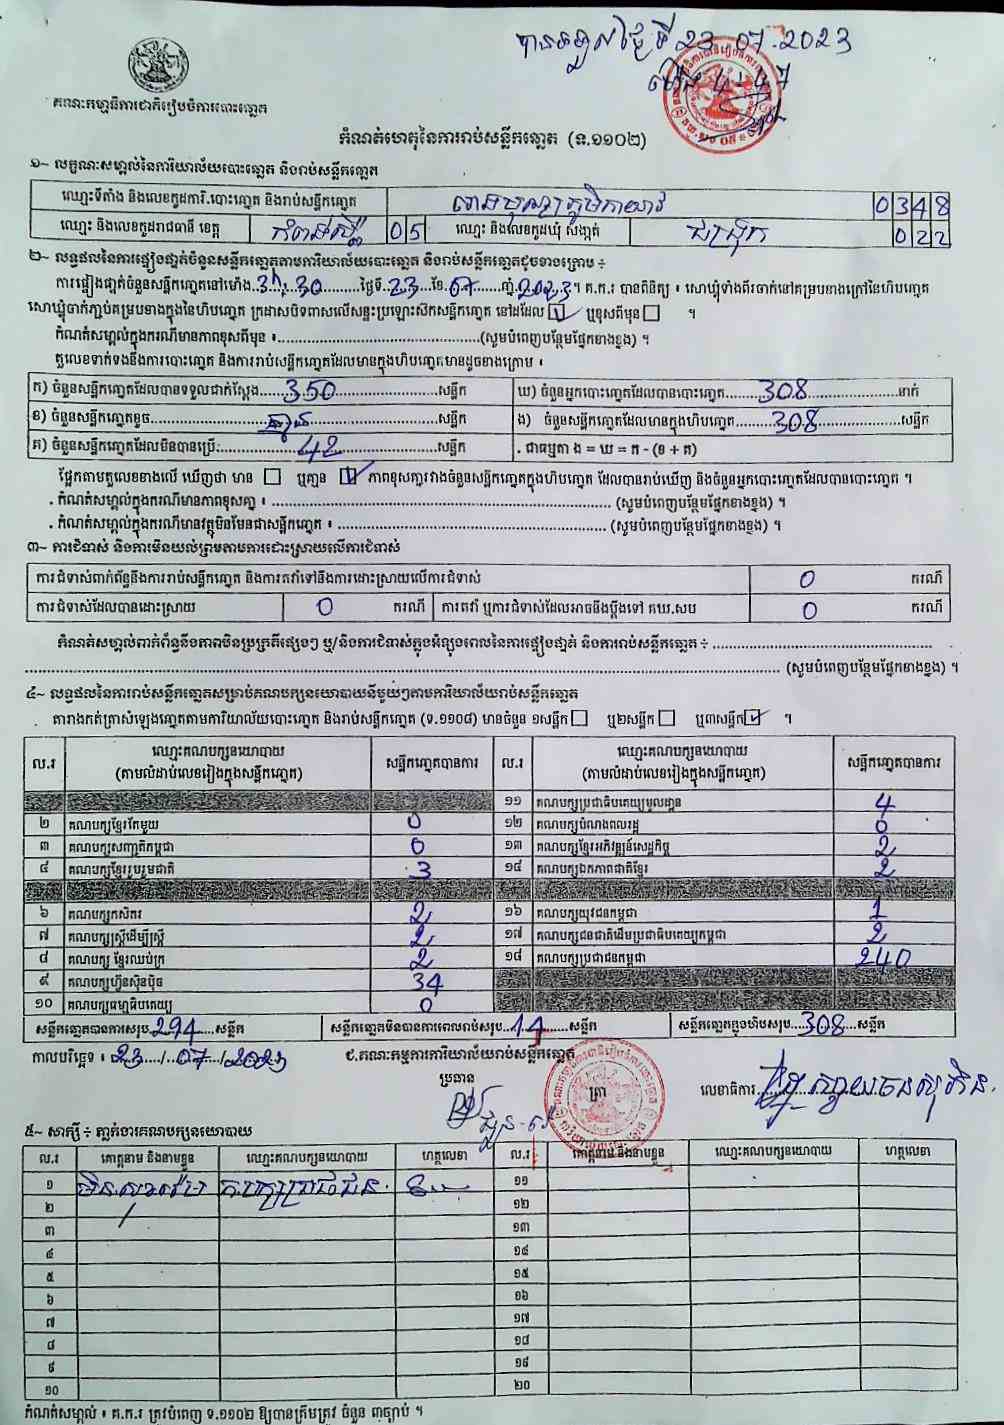 បានទទួលថ្ងៃទី 23.07.2023
ម៉ោង 4-47
គណៈកម្មាធិការជាតិរៀបចំការបោះឆ្នោត
កំណត់ហេតុនៃការរាប់សន្លឹកឆ្នោត (ទ.១១០២)
១~ លក្ខណៈសម្គាល់នៃការិយាល័យបោះឆ្នោត និងរាប់សន្លឹកឆ្នោត
ឈ្មោះទីតាំង និងលេខកូដការិ.បោះឆ្នោត និងរាប់សន្លឹកឆ្នោត 0348
ឈ្មោះ និងលេខកូដរាជធានី ខេត្ត កំពង់ស្ពឺ 05 ឈ្មោះ និងលេខកូដឃុំ សង្កាត់ 022
២~ លទ្ធផលនៃការផ្ទៀងផ្ទាត់ចំនួនសន្លឹកឆ្នោតតាមការិយាល័យបោះឆ្នោត និងរាប់សន្លឹកឆ្នោតដូចខាងក្រោម ÷
ការផ្ទៀងផ្ទាត់ចំនួនសន្លឹកឆ្នោតនៅម៉ោង 3h:30 ថ្ងៃទី 23 ខែ 07 ឆ្នាំ 2023។ គ.ក.រ បានពិនិត្យ ៖ សោឃ្មុំទាំងពីរចាក់នៅគម្របខាងក្រៅនៃហិបឆ្នោត
សោឃ្មុំចាក់ភ្ជាប់គម្របខាងក្នុងនៃហិបឆ្នោត ក្រដាសបិទពាសលើសន្ទះប្រឡោះស៊កសន្លឹកឆ្នោត នៅដដែល ☑ ឬខុសពីមុន ☐ ។
កំណត់សម្គាល់ក្នុងករណីមានភាពខុសពីមុន ៖ (សូមបំពេញបន្ថែមផ្នែកខាងខ្នង) ។
តួលេខទាក់ទងនឹងការបោះឆ្នោត និងការរាប់សន្លឹកឆ្នោតដែលមានក្នុងហិបឆ្នោតមានដូចខាងក្រោម ៖
ក) ចំនួនសន្លឹកឆ្នោតដែលបានទទួលជាក់ស្តែង 350 សន្លឹក ឃ) ចំនួនអ្នកបោះឆ្នោតដែលបានបោះឆ្នោត 308 នាក់
ខ) ចំនួនសន្លឹកឆ្នោតខូច គ្មាន សន្លឹក ង) ចំនួនសន្លឹកឆ្នោតដែលមានក្នុងហិបឆ្នោត 308 សន្លឹក
គ) ចំនួនសន្លឹកឆ្នោតដែលមិនបានប្រើ 42 សន្លឹក . ជាធម្មតា ង = ឃ = ក - (ខ + គ)
ផ្អែកតាមតួលេខខាងលើ ឃើញថា មាន ☐ ឬគ្មាន ☑ ភាពខុសគ្នារវាងចំនួនសន្លឹកឆ្នោតក្នុងហិបឆ្នោត ដែលបានរាប់ឃើញ និងចំនួនអ្នកបោះឆ្នោតដែលបានបោះឆ្នោត ។
. កំណត់សម្គាល់ក្នុងករណីមានភាពខុសគ្នា ៖ (សូមបំពេញបន្ថែមផ្នែកខាងខ្នង) ។
. កំណត់សម្គាល់ក្នុងករណីមានវត្ថុមិនមែនជាសន្លឹកឆ្នោត ៖ (សូមបំពេញបន្ថែមផ្នែកខាងខ្នង) ។
៣~ ការជំទាស់ និងការមិនយល់ព្រមតាមការដោះស្រាយលើការជំទាស់
ការជំទាស់ពាក់ព័ន្ធនឹងការរាប់សន្លឹកឆ្នោត និងការតវ៉ាទៅនឹងការដោះស្រាយលើការជំទាស់ 0 ករណី
ការជំទាស់ដែលបានដោះស្រាយ 0 ករណី ការតវ៉ា ឬការជំទាស់ដែលអាចនឹងប្តឹងទៅ គឃ.សប 0 ករណី
កំណត់សម្គាល់ពាក់ព័ន្ធនឹងភាពមិនប្រក្រតីផ្សេងៗ ឬ/និងការជំទាស់ក្នុងអំឡុងពេលនៃការផ្ទៀងផ្ទាត់ និងការរាប់សន្លឹកឆ្នោត ÷
(សូមបំពេញបន្ថែមផ្នែកខាងខ្នង) ។
៤~ លទ្ធផលនៃការរាប់សន្លឹកឆ្នោតសម្រាប់គណបក្សនយោបាយនីមួយៗតាមការិយាល័យរាប់សន្លឹកឆ្នោត
តារាងកត់ត្រាសំឡេងឆ្នោតតាមការិយាល័យបោះឆ្នោត និងរាប់សន្លឹកឆ្នោត (ទ.១១០៨) មានចំនួន ១សន្លឹក ☐ ឬ២សន្លឹក ☐ ឬ៣សន្លឹក ☑ ។
ល.រ ឈ្មោះគណបក្សនយោបាយ (តាមលំដាប់លេខរៀងក្នុងសន្លឹកឆ្នោត) សន្លឹកឆ្នោតបានការ ល.រ ឈ្មោះគណបក្សនយោបាយ (តាមលំដាប់លេខរៀងក្នុងសន្លឹកឆ្នោត) សន្លឹកឆ្នោតបានការ
១១ គណបក្សប្រជាធិបតេយ្យមូលដ្ឋាន 4
២ គណបក្សខ្មែរតែមួយ 0 ១២ គណបក្សបំណងពលរដ្ឋ 0
៣ គណបក្សសញ្ជាតិកម្ពុជា 0 ១៣ គណបក្សខ្មែរអភិវឌ្ឍន៍សេដ្ឋកិច្ច 2
៤ គណបក្សខ្មែររួបរួមជាតិ 3 ១៤ គណបក្សឯកភាពជាតិខ្មែរ 2
៦ គណបក្សកសិករ 2 ១៦ គណបក្សយុវជនកម្ពុជា 1
៧ គណបក្សស្ត្រីដើម្បីស្ត្រី 2 ១៧ គណបក្សជនជាតិដើមប្រជាធិបតេយ្យកម្ពុជា 2
៨ គណបក្ស ខ្មែរឈប់ក្រ 2 ១៨ គណបក្សប្រជាជនកម្ពុជា 240
៩ គណបក្សហ្វ៊ុនស៊ិនប៉ិច 34
១០ គណបក្សធម្មាធិបតេយ្យ 0
សន្លឹកឆ្នោតបានការសរុប 294 សន្លឹក សន្លឹកឆ្នោតមិនបានការពេលរាប់សរុប 14 សន្លឹក សន្លឹកឆ្នោតក្នុងហិបសរុប 308 សន្លឹក
កាលបរិច្ឆេទ ៖ 23/07/2023 ជ.គណៈកម្មការការិយាល័យរាប់សន្លឹកឆ្នោត
ប្រធាន ត្រា លេខាធិការ
៥~ សាក្សី ÷ ភ្នាក់ងារគណបក្សនយោបាយ
ល.រ គោត្តនាម និងនាមខ្លួន ឈ្មោះគណបក្សនយោបាយ ហត្ថលេខា ល.រ គោត្តនាម និងនាមខ្លួន ឈ្មោះគណបក្សនយោបាយ ហត្ថលេខា
១ ១១
២ ១២
៣ ១៣
៤ ១៤
៥ ១៥
៦ ១៦
៧ ១៧
៨ ១៨
៩ ១៩
១០ ២០
កំណត់សម្គាល់ ៖ គ.ក.រ ត្រូវបំពេញ ទ.១១០២ ឱ្យបានត្រឹមត្រូវ ចំនួន ៣ច្បាប់ ។